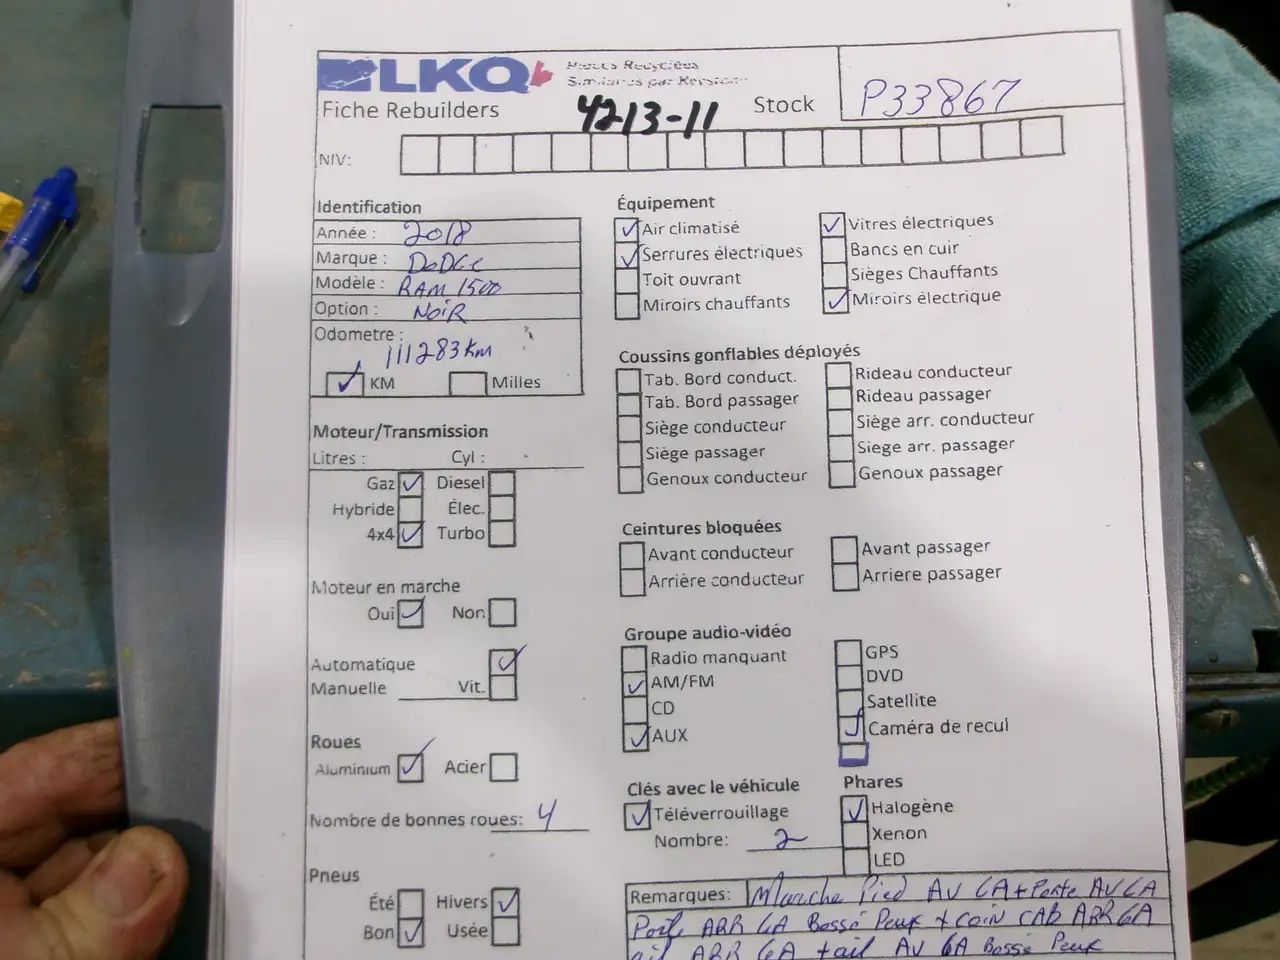 LKQ Pièces Recyclées
Similaires par Keystone
Fiche Rebuilders 4213-11 Stock P33867
NIV:
Identification
Année : 2018
Marque : DODGE
Modèle : RAM 1500
Option : NOIR
Odometre :
111283 Km
KM Milles
Moteur/Transmission
Litres : Cyl :
Gaz Diesel
Hybride Élec.
4x4 Turbo
Moteur en marche
Oui Non
Automatique
Manuelle Vit.
Roues
Aluminium Acier
Nombre de bonnes roues: 4
Pneus
Été Hivers
Bon Usée
Équipement
Air climatisé Vitres électriques
Serrures électriques Bancs en cuir
Toit ouvrant Sièges Chauffants
Miroirs chauffants Miroirs électrique
Coussins gonflables déployés
Tab. Bord conduct. Rideau conducteur
Tab. Bord passager Rideau passager
Siège conducteur Siège arr. conducteur
Siège passager Siege arr. passager
Genoux conducteur Genoux passager
Ceintures bloquées
Avant conducteur Avant passager
Arrière conducteur Arriere passager
Groupe audio-vidéo
Radio manquant GPS
AM/FM DVD
CD Satellite
AUX Caméra de recul
Clés avec le véhicule Phares
Téléverrouillage Halogène
Nombre: 2 Xenon
LED
Remarques: Marche Pied AV GA + Porte AV GA
Porte ARR GA Bossé Peux + coin CAB ARR GA
ail ARR GA + ail AV GA Bossé Peux